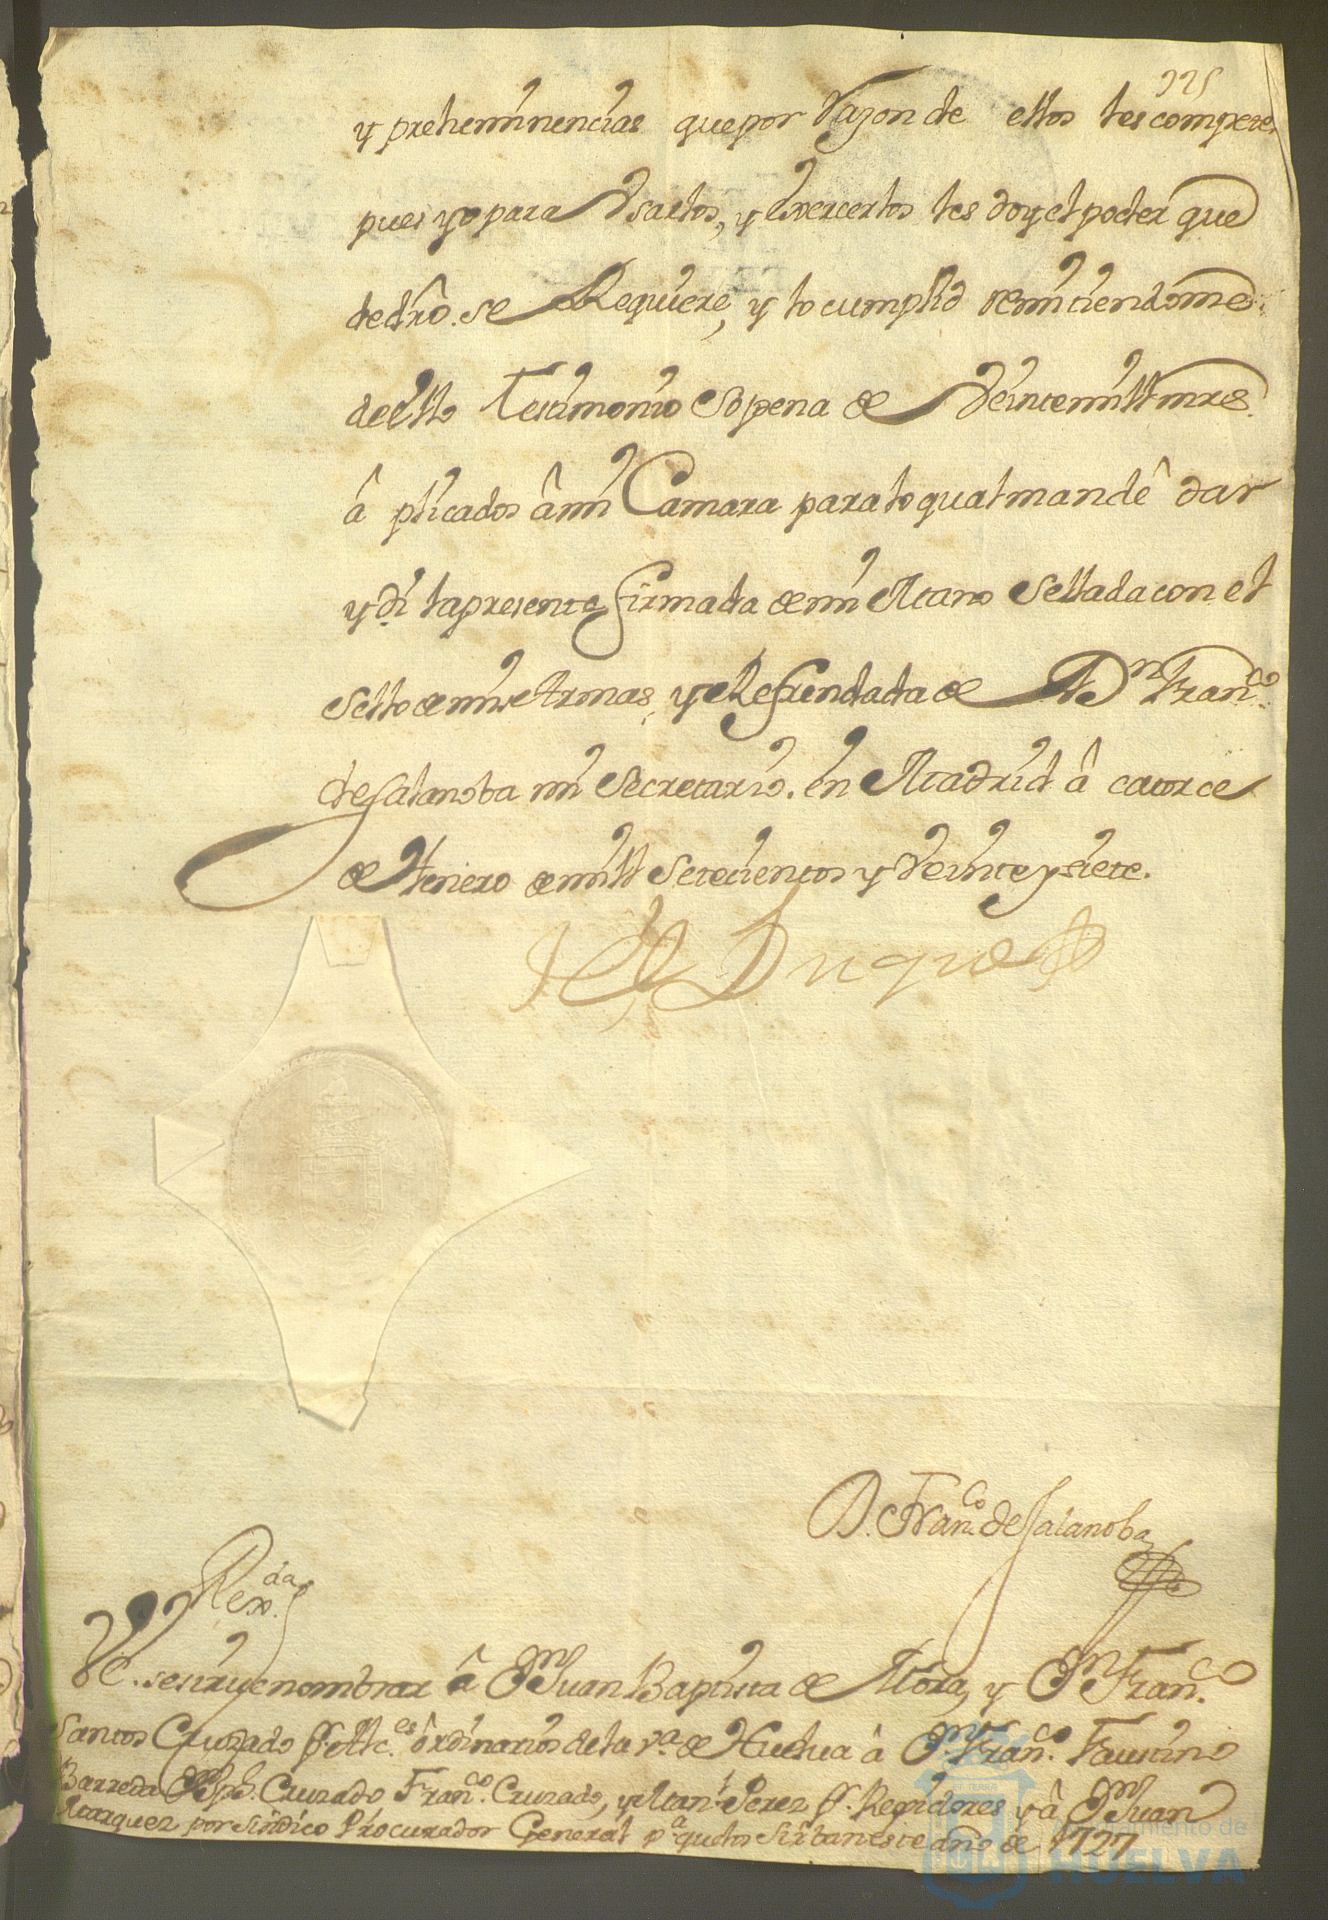 225
y preheminencias que por Razon de ellos les compete,
pues yo para Vsarlos, y Exercerlos les doy el poder que
de dro. se Requiere, y lo cumplid remitiendome
de ello Testimonio so pena de Veinte mill mrs.
â plicados â mi Camara para lo qual mandê dar
y di la presente firmada de mi Mano Sellada con el
Sello de mis Armas, y Refrendada de Dn. Franco.
de Salanoba mi Secretario. en Madrid â catorce
de Henero de mill Setecientos y Veinte y siete.
El Duque
D. Franco. de Salanoba
Rexda.
VE. se sirve nombrar â Dn. Juan Baptista de Mora, y Dn. Franco.
Santos Cruzado pr. Alces. ôrdinarios de la va. de Huelua â Dn. Franco. Faustino
Barreda Dn. Jph. Cruzado Franco. Cruzado, y Manl. Perez pr. Regidores y â Dn. Juan
Marquez por Sindico Procurador General pa. que los sirban este año de 1727
Ayuntamiento de
HUELVA